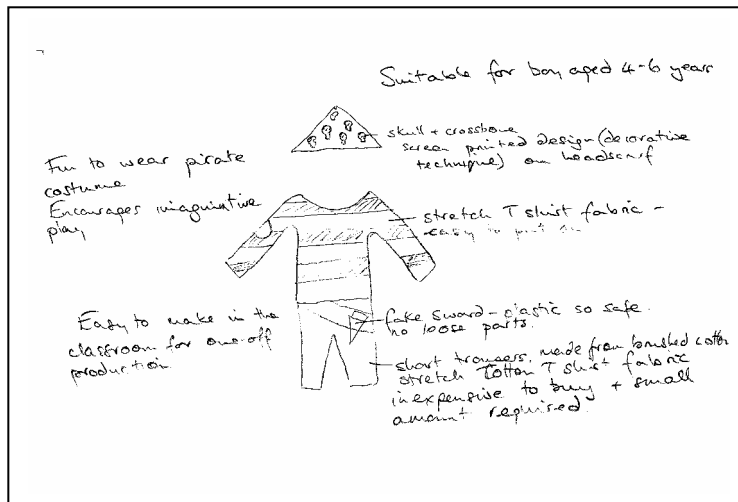 Suitable for boy aged 4-6 years
skull + crossbone
screen printed design (decorative
technique) on headscarf
Fun to wear pirate
costume
Encourages imaginative
play
stretch T shirt fabric -
easy to put on
Easy to make in the
classroom for one-off
production
fake sword - plastic so safe.
no loose parts.
short trousers, made from brushed cotton
stretch cotton T shirt fabric
inexpensive to buy + small
amount required.